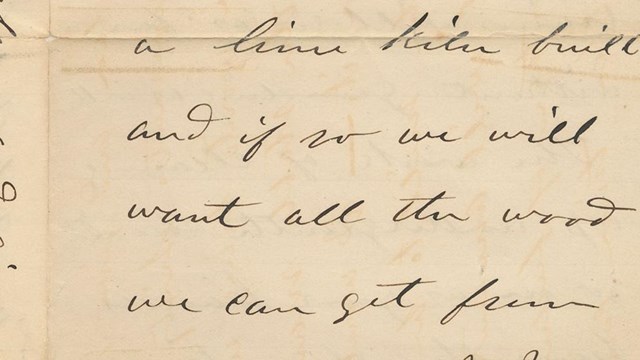 a lime kiln built
and if so we will
want all the wood
we can get from